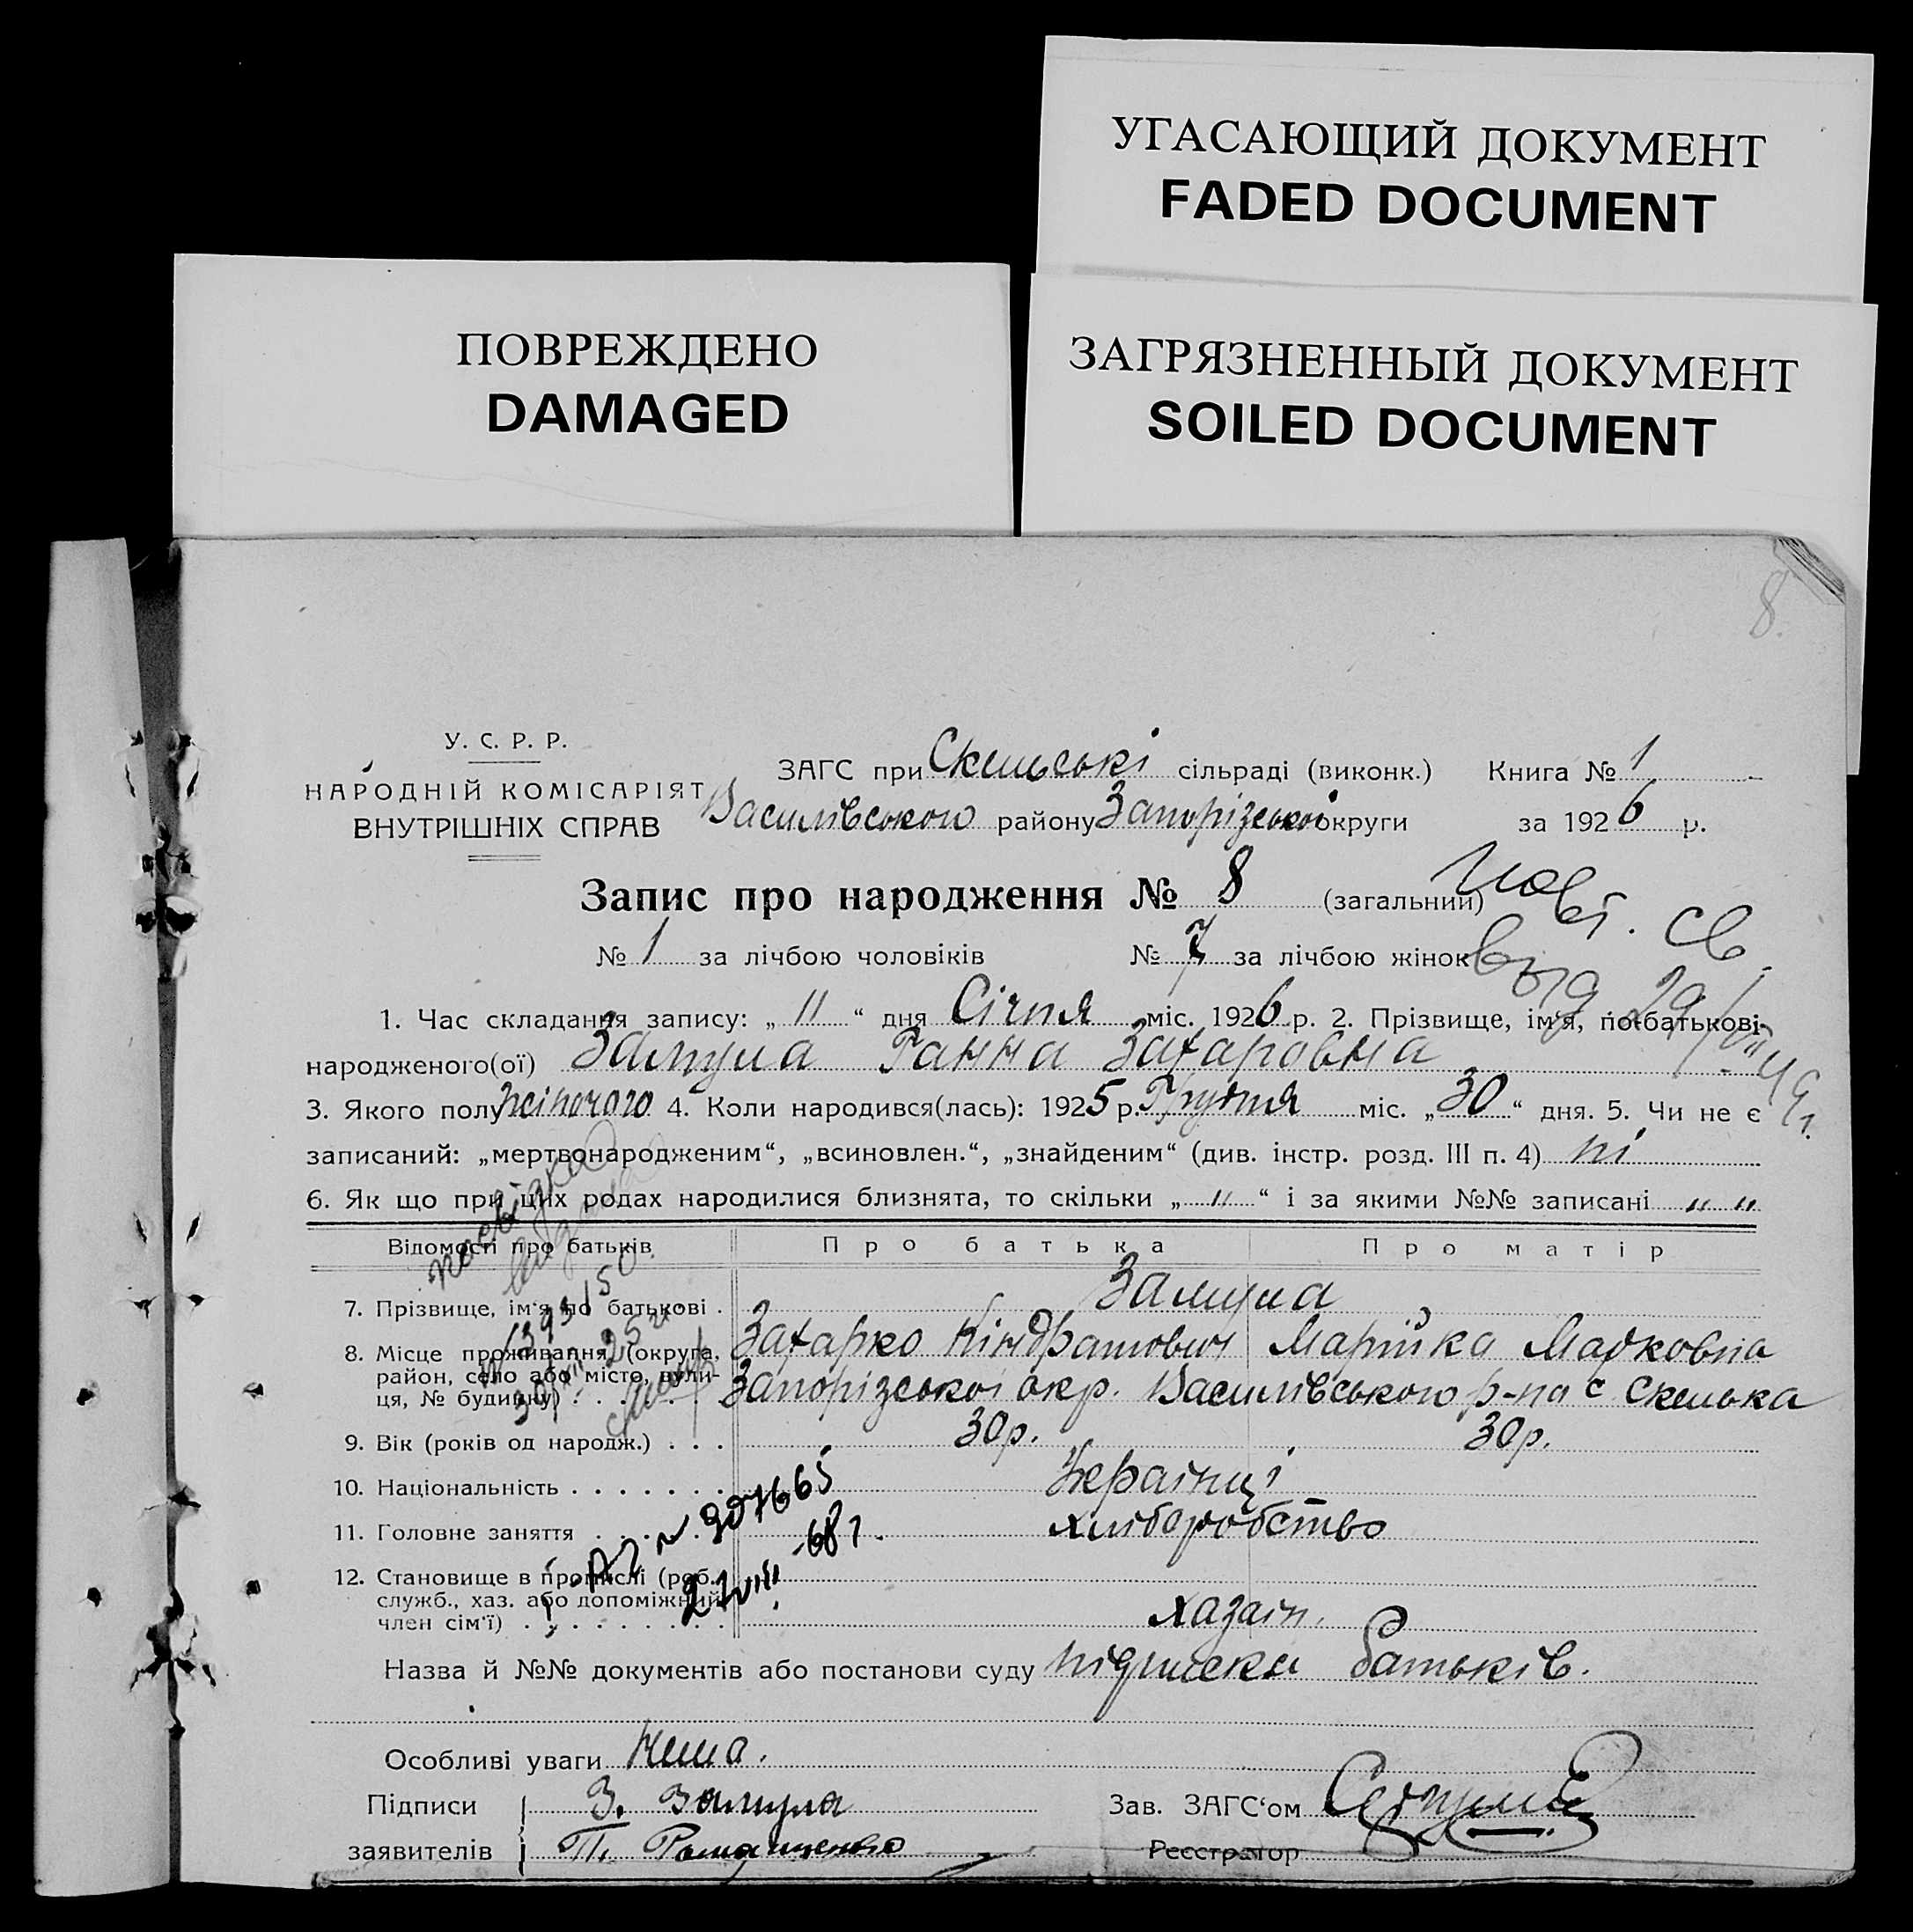 УГАСАЮЩИЙ ДОКУМЕНТ
FADED DOCUMENT
ПОВРЕЖДЕНО
DAMAGED
ЗАГРЯЗНЕННЫЙ ДОКУМЕНТ
SOILED DOCUMENT
8.
У. С. Р. Р.
НАРОДНІЙ КОМІСАРІЯТ
ВНУТРІШНІХ СПРАВ
ЗАГС при Скельські сільраді (виконк.) Книга № 1
Василівського району Запорізської округи за 1926 р.
Запис про народження № 8 (загальний)
№ 1 за лічбою чоловіків № 7 за лічбою жінок
1. Час складання запису: „ 11 “ дня Січня міс. 1926 р. 2. Прізвище, ім'я, по-батькові
народженого(ої) Замула Ганна Захаровна
3. Якого полу жіночого 4. Коли народився(лась): 1925 р. Грудня міс. „ 30 “ дня. 5. Чи не є
записаний: „мертвонародженим“, „всиновлен.“, „знайденим“ (див. інстр. розд. III п. 4) ні
6. Як що при цих родах народилися близнята, то скільки „ " “ і за якими №№ записані " "
Відомості про батьків Про батька Про матір
7. Прізвище, ім'я по батькові Замула
Захарко Кіндратович Марійка
8. Місце проживання (округа,
район, село або місто, вули-
ця, № будинку) Запорізської окр. Василівського р-на с Скелька
9. Вік (років од народж.) 30р. 30р.
10. Національність Українці
11. Головне заняття хліборобство
12. Становище в промислі (роб.,
служб., хаз. або допоміжний
член сім'ї) хазаїн.
№ 307665
68 г.
Назва й №№ документів або постанови суду підписка батьків.
Особливі уваги Нема.
Підписи
заявителів
З. Замула
П. Ромащенко
Зав. ЗАГС'ом
Реєстратор